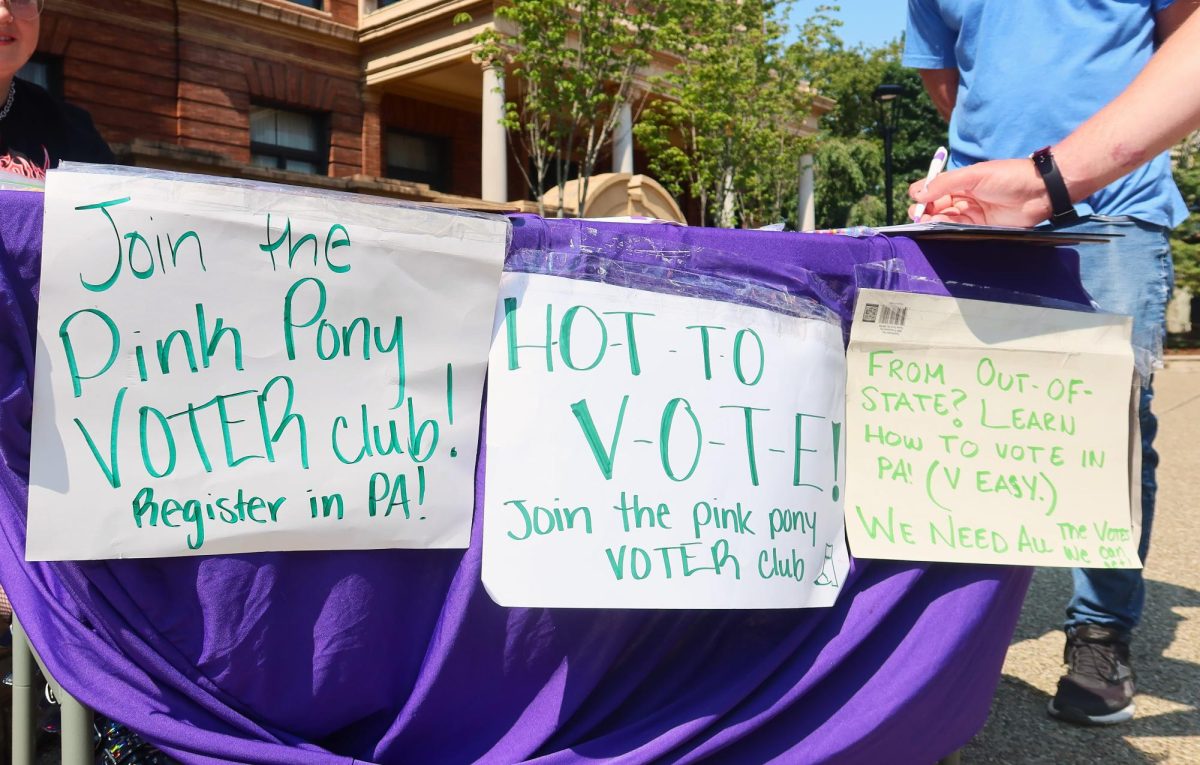 Join the
Pink Pony
VOTER club!
Register in PA!
H-O-T-T-O
V-O-T-E!
Join the pink pony
VOTER club
FROM OUT-OF-
STATE? LEARN
HOW TO VOTE IN
PA! (V EASY.)
WE NEED ALL THE VOTES
WE CAN
GET